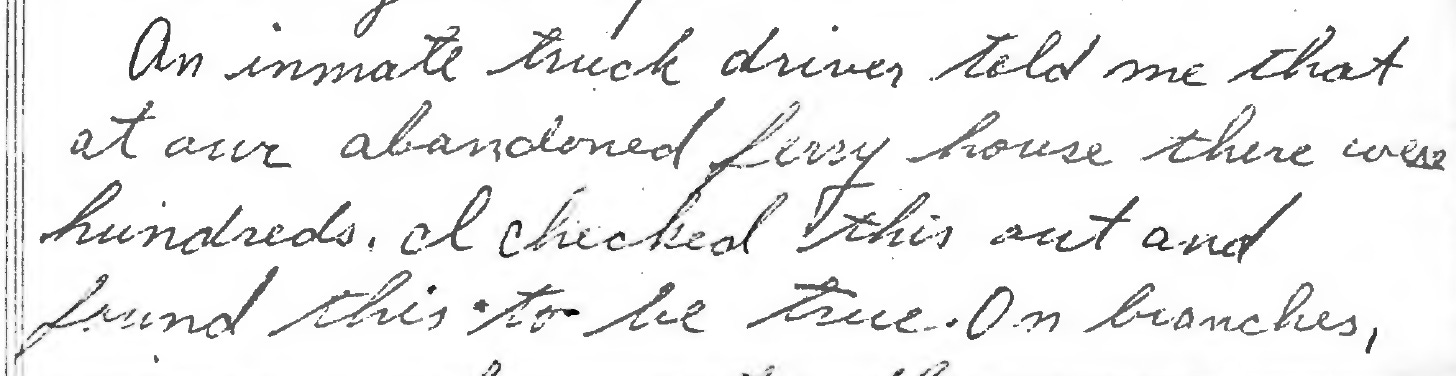 An inmate truck driver told me that
at our abandoned ferry house there were
hundreds. I checked this out and
found this to be true. On branches,